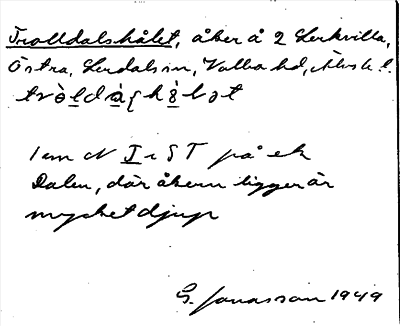 Trolldalshålet, åker å 2 Lerkvilla,
Östra, Lerdals sn, Valbo hd, Älvsb. l.
tròldàʃhòlət
1 em N I i S T på ek
Dalen, där åkern ligger är
mycket djup
G. Jonasson 1949